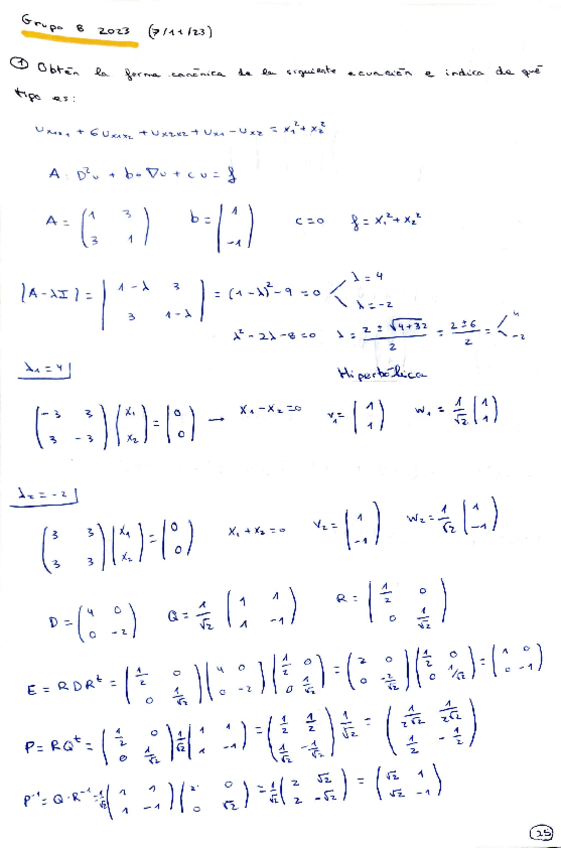 Grupo 8 2023 (7/11/23)
① Obtén la forma canónica de la siguiente ecuación e indica de qué
tipo es:
u_{x1x1} + 6u_{x1x2} + u_{x2x2} + u_{x1} - u_{x2} = x₁² + x₂²
A : D²u + b · ∇u + c u = f
A = (1 3; 3 1) b = (1; -1) c = 0 f = x₁² + x₂²
|A - λI| = |1-λ 3; 3 1-λ| = (1-λ)² - 9 = 0 < λ = 4; λ = -2
λ² - 2λ - 8 = 0 λ = (2 ± √(4+32))/2 = (2 ± 6)/2 = < 4; -2
λ₁ = 4 Hiperbólica
(-3 3; 3 -3)(x₁; x₂) = (0; 0) → x₁ - x₂ = 0 v₁ = (1; 1) w₁ = 1/√2 (1; 1)
λ₂ = -2
(3 3; 3 3)(x₁; x₂) = (0; 0) x₁ + x₂ = 0 v₂ = (1; -1) w₂ = 1/√2 (1; -1)
D = (4 0; 0 -2) Q = 1/√2 (1 1; 1 -1) R = (1/2 0; 0 1/√2)
E = RDRᵗ = (1/2 0; 0 1/√2)(4 0; 0 -2)(1/2 0; 0 1/√2) = (2 0; 0 -2/√2)(1/2 0; 0 1/√2) = (1 0; 0 -1)
P = RQᵗ = (1/2 0; 0 1/√2) 1/√2 (1 1; 1 -1) = (1/2 1/2; 1/√2 -1/√2) 1/√2 = (1/2√2 1/2√2; 1/2 -1/2)
P⁻¹ = Q · R⁻¹ = 1/√2 (1 1; 1 -1)(2 0; 0 √2) = 1/√2 (2 √2; 2 -√2) = (√2 1; √2 -1)
25